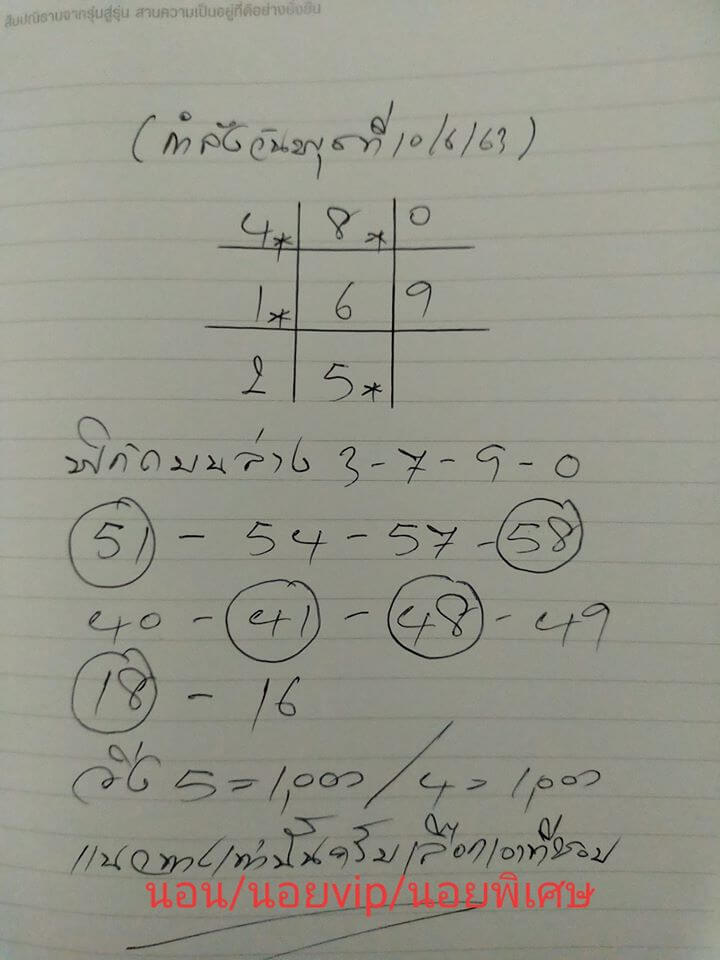 สืบปณิธานจากรุ่นสู่รุ่น สานความเป็นอยู่ที่ดีอย่างยั่งยืน
(กำลังวันพุธที่ 10/6/63)
4* 8* 0
1* 6 9
2 5*
พิกัดบนล่าง 3-7-9-0
51 - 54 - 57 - 58
40 - 41 - 48 - 49
18 - 16
วิ่ง 5 = 1,000 / 4 = 1,000
แนวทางเท่านั้นครับ เลือกเอาที่ชอบ
นอน/นอยvip/นอยพิเศษ